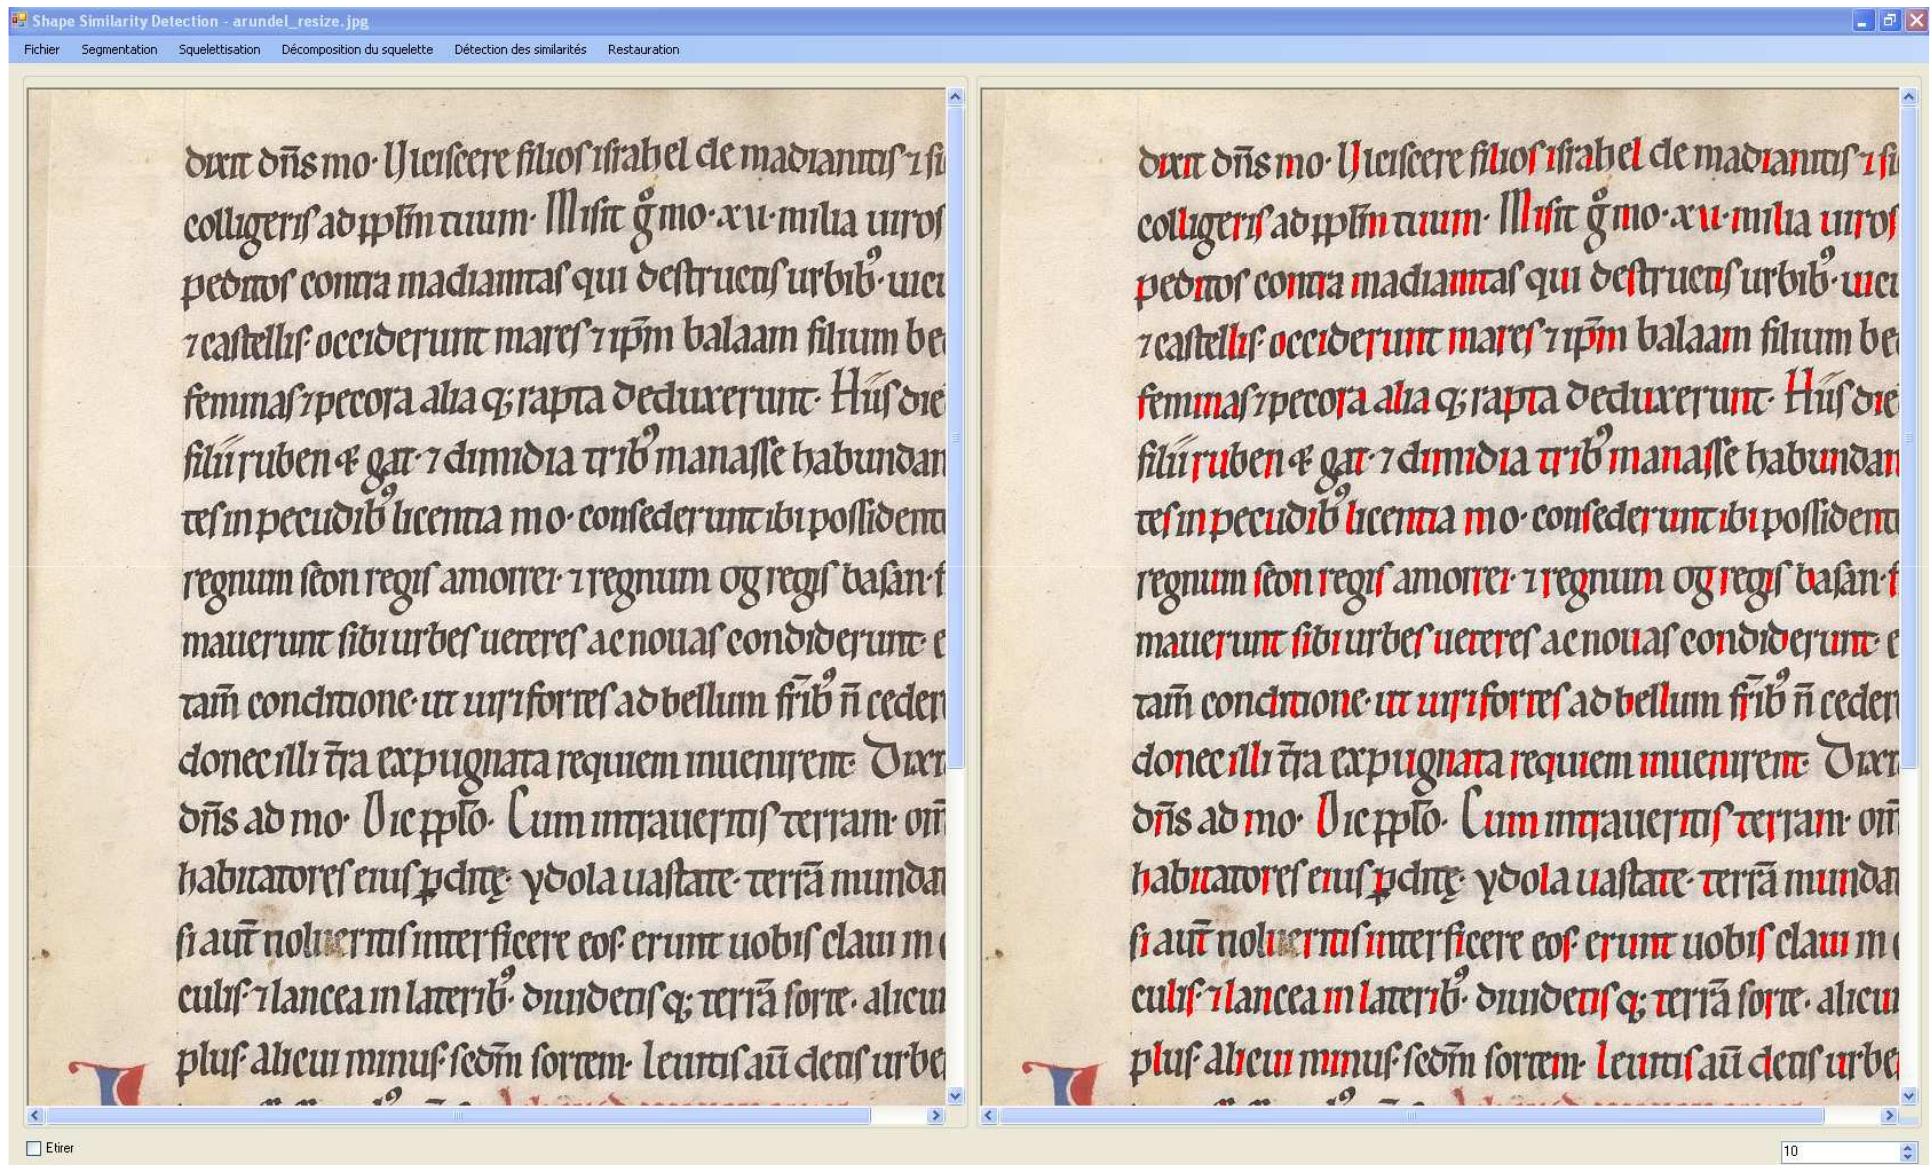 Shape Similarity Detection - arundel_resize.jpg
Fichier Segmentation Squelettisation Décomposition du squelette Détection des similarités Restauration
dixit dn̄s mo· Ulciscere filios israhel de madianitis ⁊ si
colligeris ad pplm̄ tuum· Misit g̊ mo· xii· milia uiros
peditos contra madianitas qui destructis urbib⁹· uici
⁊ castellis· occiderunt mares ⁊ ip̄m balaam filium be
feminas ⁊ pecora alia q; rapta deduxerunt· Hiis die
filii ruben & gat· ⁊ dimidia trib⁹ manasse habundan
tes in pecudib⁹ licentia mo· consederunt ibi possidenti
regnum seon regis amorrei· ⁊ regnum og regis basan· f
mauerunt sibi urbes ueteres ac nouas condiderunt· e
tam̄ conditione· ut uiri fortes ad bellum fr̄ib⁹ n̄ ceder
donec illi t̄ra expugnata requiem inuenirent· Dixer
dn̄s ad mo· Dic pplo· Cum intraueritis terram· om̄
habitatores eius ꝑdite· ydola uastate· terrā munda
si aut̄ nolueritis interficere eos· erunt uobis claui in
culis· ⁊ lancea in laterib⁹· diuidetis q; terrā sorte· alicui
plus· alicui minus· sedm̄ sortem· leuitis aū detis urbe
dixit dn̄s mo· Ulciscere filios israhel de madianitis ⁊ si
colligeris ad pplm̄ tuum· Misit g̊ mo· xii· milia uiros
peditos contra madianitas qui destructis urbib⁹· uici
⁊ castellis· occiderunt mares ⁊ ip̄m balaam filium be
feminas ⁊ pecora alia q; rapta deduxerunt· Hiis die
filii ruben & gat· ⁊ dimidia trib⁹ manasse habundan
tes in pecudib⁹ licentia mo· consederunt ibi possidenti
regnum seon regis amorrei· ⁊ regnum og regis basan· f
mauerunt sibi urbes ueteres ac nouas condiderunt· e
tam̄ conditione· ut uiri fortes ad bellum fr̄ib⁹ n̄ ceder
donec illi t̄ra expugnata requiem inuenirent· Dixer
dn̄s ad mo· Dic pplo· Cum intraueritis terram· om̄
habitatores eius ꝑdite· ydola uastate· terrā munda
si aut̄ nolueritis interficere eos· erunt uobis claui in
culis· ⁊ lancea in laterib⁹· diuidetis q; terrā sorte· alicui
plus· alicui minus· sedm̄ sortem· leuitis aū detis urbe
Etirer
10